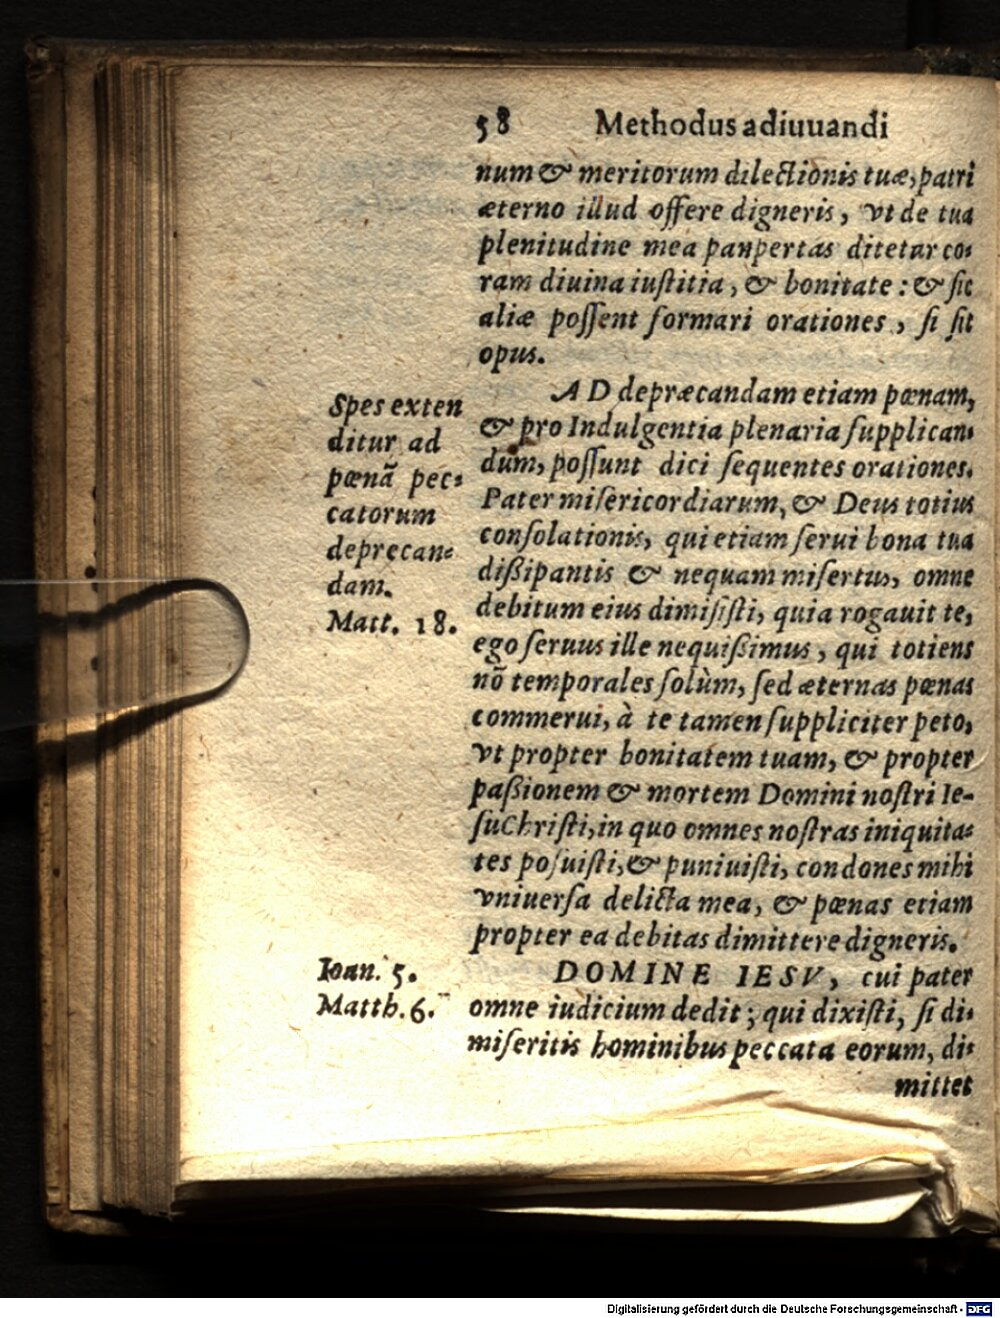 58 Methodus adiuuandi
num & meritorum dilectionis tuæ, patri
æterno illud offere digneris, vt de tua
plenitudine mea paupertas ditetur co-
ram diuina iuſtitia, & bonitate : & ſic
aliæ poſſent formari orationes, ſi ſit
opus.
AD depræcandam etiam pœnam,
& pro Indulgentia plenaria ſupplican-
dum, poſſunt dici ſequentes orationes.
Pater miſericordiarum, & Deus totius
conſolationis, qui etiam ſerui bona tua
dißipantis & nequam miſertus, omne
debitum eius dimiſiſti, quia rogauit te,
ego ſeruus ille nequißimus, qui totiens
nõ temporales ſolùm, ſed æternas pœnas
commerui, à te tamen ſuppliciter peto,
vt propter bonitatem tuam, & propter
paßionem & mortem Domini noſtri Ie-
ſu Chriſti, in quo omnes noſtras iniquita-
tes poſuiſti, & puniuiſti, condones mihi
vniuerſa delicta mea, & pœnas etiam
propter ea debitas dimittere digneris.
DOMINE IESV, cui pater
omne iudicium dedit ; qui dixiſti, ſi di-
miſeritis hominibus peccata eorum, di-
mittet
Spes exten
ditur ad
pœnã pec-
catorum
deprecan-
dam.
Matt. 18.
Ioan. 5.
Matth. 6.
Digitalisierung gefördert durch die Deutsche Forschungsgemeinschaft - DFG